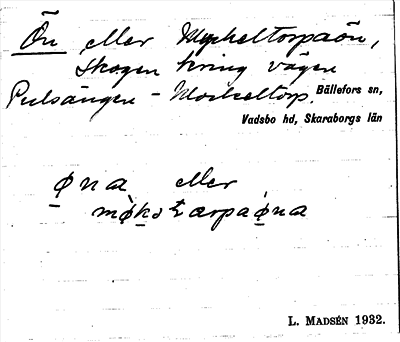 Ön eller Myckeltorpaön,
skogen kring vägen
Pulsängen - Mockeltorp. Bällefors sn,
Vadsbo hd, Skaraborgs län
øna eller
L. MADSÉN 1932.